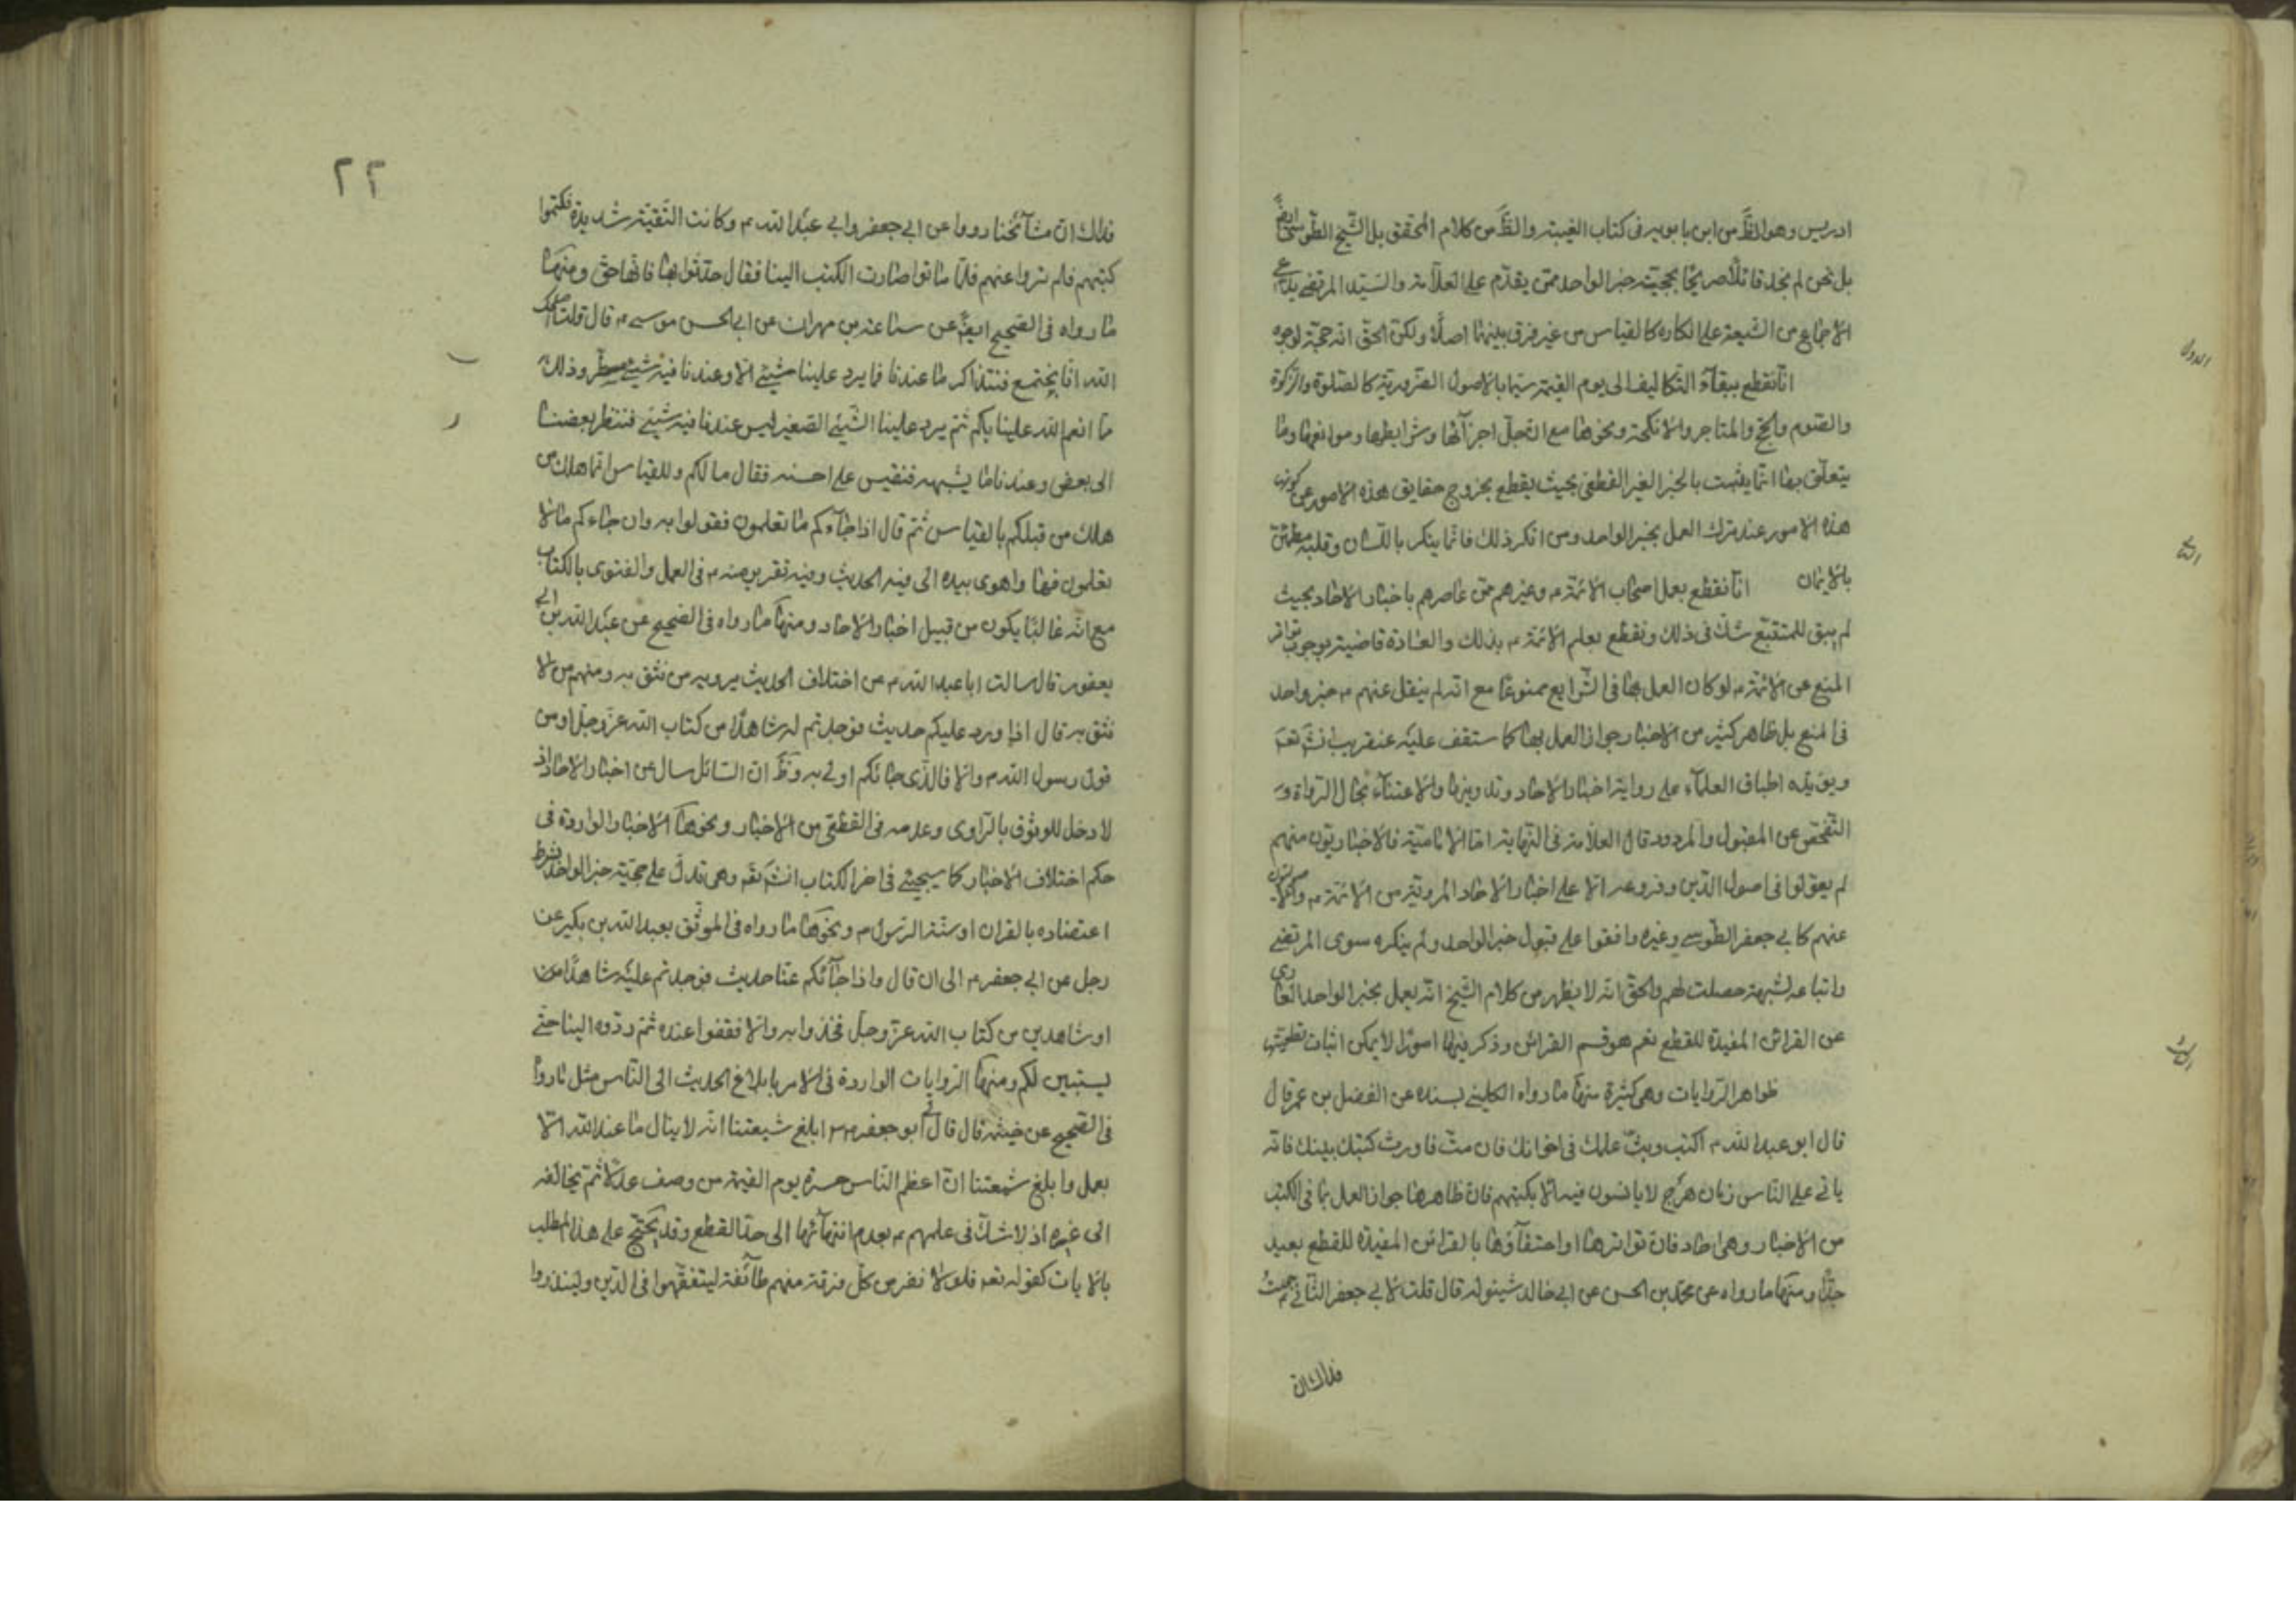 ادريس وهو الظّ من ابن بابويه فى كتاب الغيبة والظّ من كلام المحقق بل الشّيخ الطّوسىّ ايضً
بل نحن لم نجد قائلًا صريحًا بحجيّة خبر الواحد ممّن يقدّم على العلّامة والسّيّد المرتضى يدّعى
الاجماع من الشّيعة على انكاره كالقياس من غير فرق بينهما اصلًا ولكن الحقّ انّه حجّة لوجوه
الاول
انّا نقطع ببقآء التّكاليف الى يوم القيمة سيّما بالاصول الضّروريّة كالصّلوة والزّكوة
والصّوم والحجّ والمتاجر والانكحة ونحوها مع انّ جلّ اجزآئها وشرايطها وموانعها وما
يتعلّق بها انّما يثبت بالخبر الغير القطعىّ بحيث يقطع بخروج حقايق هذه الامور عن كونها
هذه الامور عند ترك العمل بخبر الواحد ومن انكر ذلك فانّما ينكر باللّسان وقلبه مطمئنّ
بالايمان
الثانى
انّا نقطع بعمل اصحاب الائمّة م وغيرهم ممّن عاصرهم باخبار الاحاد بحيث
لم يبق للمتتبّع شكّ فى ذلك ونقطع بعلم الائمّة م بذلك والعادة قاضية بوجوب تواتر
المنع عن الائمّة م لو كان العمل بها فى الشّرايع ممنوعًا مع انّه لم ينقل عنهم م خبر واحد
فى المنع بل ظاهر كثير من الاخبار جواز العمل بها كما ستقف عليه عنقريب انشَ تعَ
ويؤيّده اطباق العلمآء على رواية اخبار الاحاد وتدوينها والاعتنآء بحال الرّواة وَ
التّفحّص عن المقبول والمردود قال العلّامة فى النّهاية امّا الاماميّة فالاخباريّون منهم
لم يعوّلوا فى اصول الدّين وفروعه الّا على اخبار الاحاد المرويّة من الائمّة م والاصوليّون
منهم كابى جعفر الطّوسى وغيره وافقوا على قبول خبر الواحد ولم ينكره سوى المرتضى
واتباعه لشبهة حصلت لهم والحقّ انّه لا يظهر من كلام الشّيخ انّه يعمل بخبر الواحد العارى
عن القرائن المفيدة للقطع نعم هو قسم القرائن وذكر فيها امورًا لا يمكن اثبات قطعيّتها
الثالث
ظواهر الرّوايات وهى كثيرة منها ما رواه الكلينى بسنده عن المفضل بن عمر قال
قال ابو عبد الله م اكتب وبثّ علمك فى اخوانك فان متّ فاورث كتبك بنيك فانّه
ياتى على النّاس زمان هرج لا يانسون فيه الّا بكتبهم فانّ ظاهرها جواز العمل بما فى الكتب
من الاخبار وهى احاد فانّ تواترها او احتفآؤها بالقرائن المفيدة للقطع بعيد
جدّاً ومنها ما رواه عن محمّد بن الحسن عن ابى خالد شينوله قال قلت لابى جعفر الثّانى م جعلتُ
فداك انّ
٢٢
فداك انّ مشآئخنا رووا عن ابى جعفر وابى عبد الله م وكانت التّقيّة شديدة فكتموا
كتبهم فلم تروا عنهم فلمّا ماتوا صارت الكتب الينا فقال حدّثوا بها فانّها حقّ ومنها
ما رواه فى الصّحيح ايضً عن سماعة بن مهران عن ابى الحسن موسى م قال قلت اصلحك
الله انّا نجتمع فنتذاكر ما عندنا فما يرد علينا شيئ الّا وعندنا فيه شيئ مسطّر وذلك
ما انعم الله علينا بكم ثمّ يرد علينا الشّيئ الصّغير ليس عندنا فيه شيئ فننظر بعضنا
الى بعض وعندنا ما يشبهه فنقيس على احسنه فقال ما لكم وللقياس انّما هلك من
هلك من قبلكم بالقياس ثمّ قال اذا جآءكم ما تعلمون فقولوا به وان جاءكم ما لا
تعلمون فها واهوى بيده الى فيه الحديث وفيه تقرير منه م فى العمل والفتوى بالكتاب
مع انّه غالبًا يكون من قبيل اخبار الاحاد ومنها ما رواه فى الصّحيح عن عبد الله بن ابى
يعفور قال سالت ابا عبد الله م عن اختلاف الحديث يرويه من نثق به ومنهم من لا
نثق به قال اذا ورد عليكم حديث فوجدتم له شاهدًا من كتاب الله عزّ وجلّ او من
قول رسول الله م والّا فالّذى جائكم اولى به وظَّ انّ السّائل سال عن اخبار الاحاد اذ
لا دخل للوثوق بالرّاوى وعدمه فى القطعىّ من الاخبار ونحوها الاخبار الواردة فى
حكم اختلاف الاخبار كما سيجيئ فى اخر الكتاب انشَ تعَ وهى تدلّ على حجّيّة خبر الواحد بشرط
اعتضاده بالقران او سنّة الرّسول م ونحوها ما رواه فى الموثّق بعبد الله بن بكير عن
رجل عن ابى جعفر م الى ان قال واذا جآئكم عنّا حديث فوجدتم عليه شاهدًا من
او شاهدين من كتاب الله عزّ وجلّ فخذوا به والّا فقفوا عنده ثمّ ردّوه الينا حتّى
يستبين لكم ومنها الرّوايات الواردة فى الامر بابلاغ الحديث الى النّاس مثل ما روا
فى الصّحيح عن خيثمة قال قال لى ابو جعفر م ابلغ شيعتنا انّه لا ينال ما عند الله الّا
بعمل وابلغ شيعتنا انّ اعظم النّاس حسرة يوم القيمة من وصف عدلًا ثمّ يخالفه
الى غيره اذ لا شكّ فى علمهم م بعدم انتهآئها الى حدّ القطع وقد يحتجّ على هذا المطلب
بالايات كقوله تعَ فلولا نفر من كلّ فرقة منهم طآئفة ليتفقّهوا فى الدّين ولينذروا